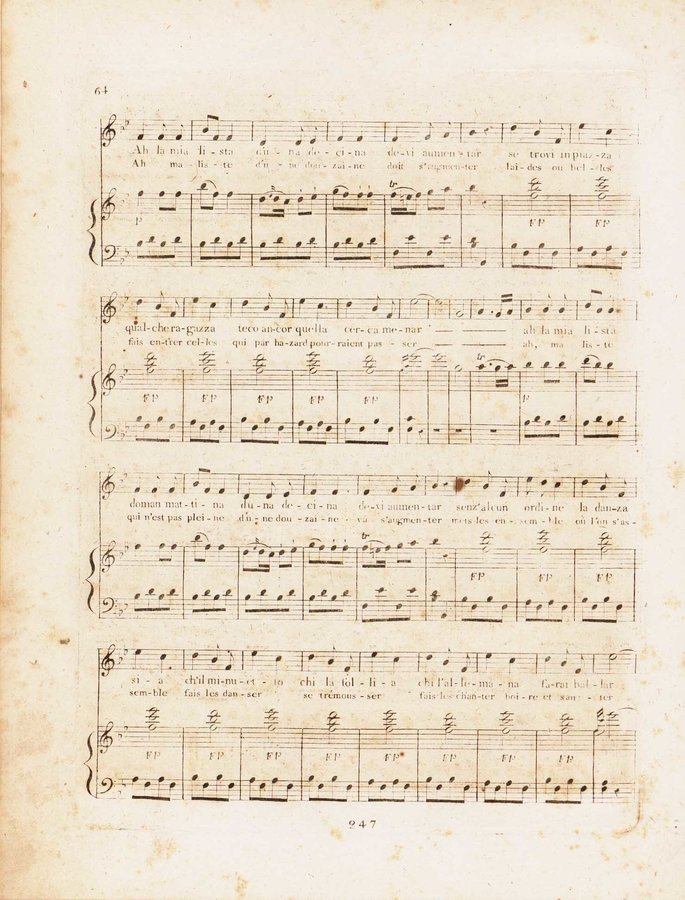 64
Ah la mia li - sta d'u - na de - ci - na de - vi aumen - tar se trovi in piaz - za
Ah ma - lis - te d'u - ne dou - zai - ne doit s'augmen - ter lai - des ou bel - les
P FP FP
qual - che ra - gazza teco an - cor quella cer - ca me - nar ah la mia li - sta
fais en - trer cel - les qui par ha - zard pour - raient pas - ser ah, ma lis - te
FP FP FP FP tr P
doman mat - ti - na d'u - na de - ci - na de - vi aumen - tar senz'alcun ordi - ne la danza
qui n'est pas plei - ne d'u - ne dou - zai - ne va s'augmen - ter mets les en - sem - ble où l'on s'as -
tr FP FP FP
si - a ch'il mi - nu - et - to chi la fol - li - a chi l'al - le - ma - na fa - rai bal - lar
sem - ble fais les dan - ser se trémous - ser fais les chan - ter boi - re et sau - ter
FP FP FP FP FP FP FP
247